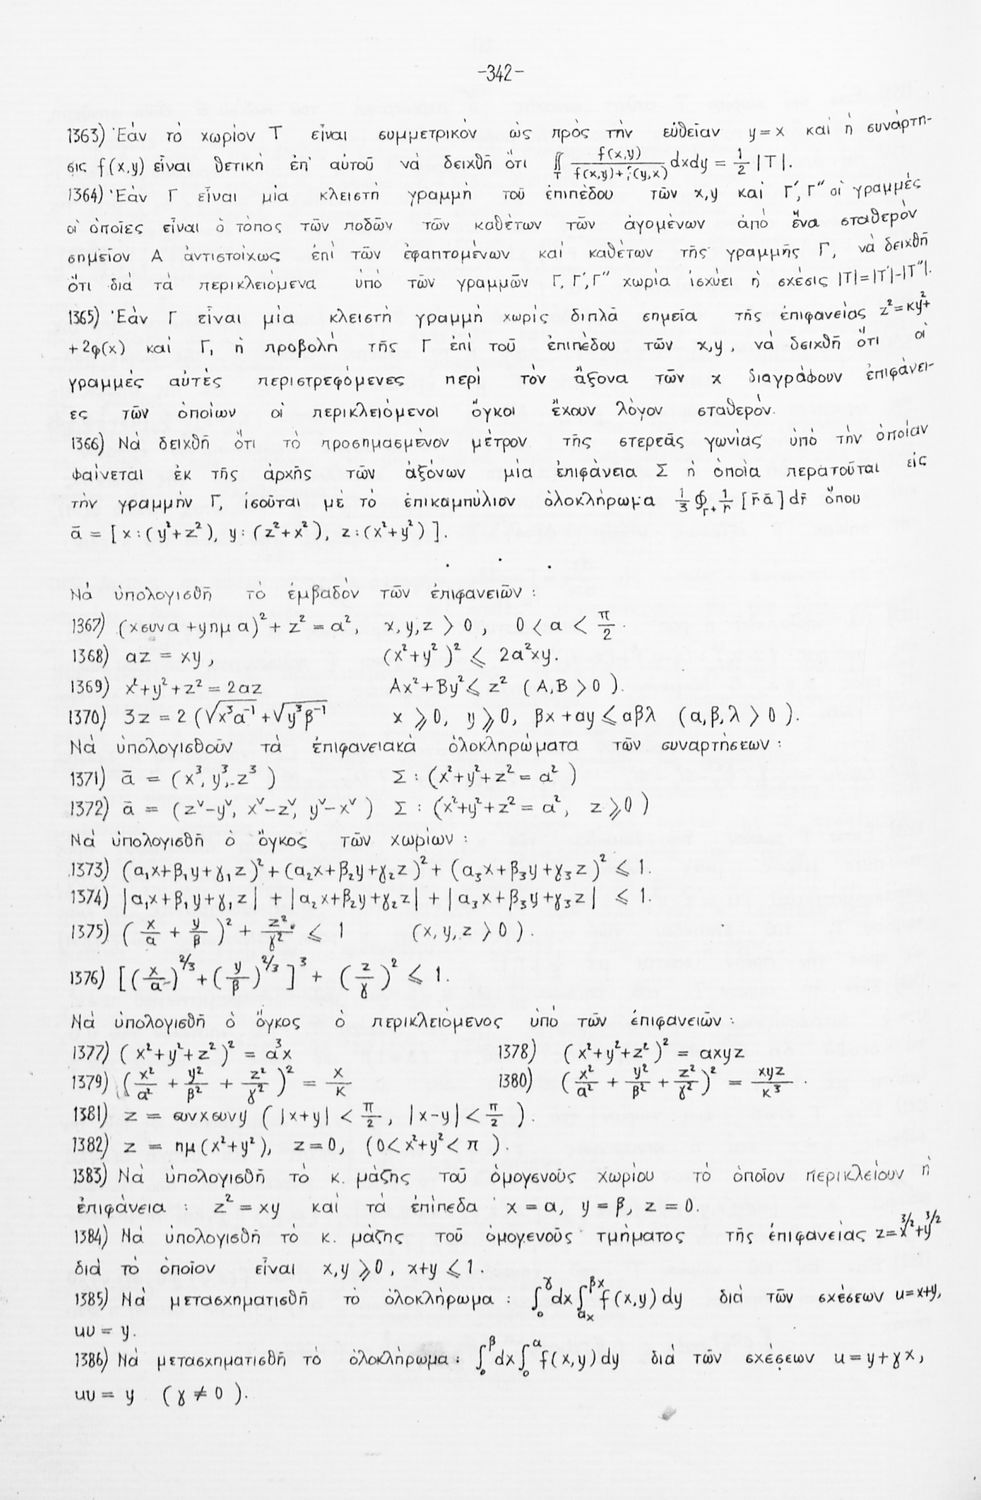 -342-
1363) Ἐάν τό χωρίον Τ εἶναι συμμετρικόν ὡς πρός τήν εὐθεῖαν y=x καί ἡ συνάρτη-
σις f(x,y) εἶναι θετική ἐπ' αὐτοῦ νά δειχθῇ ὅτι ∬_T f(x,y)/(f(x,y)+f(y,x)) dxdy = 1/2 |T|.
1364) Ἐάν Γ εἶναι μία κλειστή γραμμή τοῦ ἐπιπέδου τῶν x,y καί Γ΄,Γ΄΄ οἱ γραμμές
οἱ ὁποῖες εἶναι ὁ τόπος τῶν ποδῶν τῶν καθέτων τῶν ἀγομένων ἀπό ἕνα σταθερόν
σημεῖον Α ἀντιστοίχως ἐπί τῶν ἐφαπτομένων καί καθέτων τῆς γραμμῆς Γ, νά δειχθῇ
ὅτι διά τά περικλειόμενα ὑπό τῶν γραμμῶν Γ,Γ΄,Γ΄΄ χωρία ἰσχύει ἡ σχέσις |T|=|T΄|-|T΄΄|.
1365) Ἐάν Γ εἶναι μία κλειστή γραμμή χωρίς διπλά σημεῖα τῆς ἐπιφανείας z²=κy²+
+2φ(x) καί Γ₁ ἡ προβολή τῆς Γ ἐπί τοῦ ἐπιπέδου τῶν x,y, νά δειχθῇ ὅτι οἱ
γραμμές αὐτές περιστρεφόμενες περί τόν ἄξονα τῶν x διαγράφουν ἐπιφάνει-
ες τῶν ὁποίων οἱ περικλειόμενοι ὄγκοι ἔχουν λόγον σταθερόν.
1366) Νά δειχθῇ ὅτι τό προσημασμένον μέτρον τῆς στερεᾶς γωνίας ὑπό τήν ὁποίαν
φαίνεται ἐκ τῆς ἀρχῆς τῶν ἀξόνων μία ἐπιφάνεια Σ ἡ ὁποία περατοῦται εἰς
τήν γραμμήν Γ, ἰσοῦται μέ τό ἐπικαμπύλιον ὁλοκλήρωμα 1/3 ∮_Γ+ 1/r [r̄ā]dr̄ ὅπου
ā = [x:(y²+z²), y:(z²+x²), z:(x²+y²)].
Νά ὑπολογισθῇ τό ἐμβαδόν τῶν ἐπιφανειῶν :
1367) (xσυνα+yημα)²+z²=α², x,y,z > 0, 0 < α < π/2.
1368) αz = xy, (x²+y²)² ⩽ 2α²xy.
1369) x²+y²+z²=2αz Ax²+By² ⩽ z² (A,B > 0).
1370) 3z = 2(√x³α⁻¹ + √y³β⁻¹ x ⩾ 0, y ⩾ 0, βx+αy ⩽ αβλ (α,β,λ > 0).
Νά ὑπολογισθοῦν τά ἐπιφανειακά ὁλοκληρώματα τῶν συναρτήσεων :
1371) ā = (x³, y³, z³) Σ : (x²+y²+z²=α²)
1372) ā = (z^ν-y^ν, x^ν-z^ν, y^ν-x^ν) Σ : (x²+y²+z²=α², z ⩾ 0)
Νά ὑπολογισθῇ ὁ ὄγκος τῶν χωρίων :
1373) (α₁x+β₁y+γ₁z)²+(α₂x+β₂y+γ₂z)²+(α₃x+β₃y+γ₃z)² ⩽ 1.
1374) |α₁x+β₁y+γ₁z| + |α₂x+β₂y+γ₂z| + |α₃x+β₃y+γ₃z| ⩽ 1.
1375) (x/α + y/β)² + z²/γ² ⩽ 1 (x,y,z > 0).
1376) [(x/α)^2/3+(y/β)^2/3]³ + (z/γ)² ⩽ 1.
Νά ὑπολογισθῇ ὁ ὄγκος ὁ περικλειόμενος ὑπό τῶν ἐπιφανειῶν :
1377) (x²+y²+z²)² = α³x 1378) (x²+y²+z²)² = αxyz
1379) (x²/α² + y²/β² + z²/γ²)² = x/κ 1380) (x²/α² + y²/β² + z²/γ²)² = xyz/κ³.
1381) z = συνxσυνy (|x+y| < π/2, |x-y| < π/2).
1382) z = ημ(x²+y²), z=0, (0<x²+y²<π).
1383) Νά ὑπολογισθῇ τό κ. μάζης τοῦ ὁμογενοῦς χωρίου τό ὁποῖον περικλείουν ἡ
ἐπιφάνεια : z²=xy καί τά ἐπίπεδα x=α, y=β, z=0.
1384) Νά ὑπολογισθῇ τό κ. μάζης τοῦ ὁμογενοῦς τμήματος τῆς ἐπιφανείας z=x^3/2+y^3/2
διά τό ὁποῖον εἶναι x,y ⩾ 0, x+y ⩽ 1.
1385) Νά μετασχηματισθῇ τό ὁλοκλήρωμα : ∫₀^γ dx ∫_αx^βx f(x,y)dy διά τῶν σχέσεων u=x+y,
uυ = y.
1386) Νά μετασχηματισθῇ τό ὁλοκλήρωμα : ∫₀^β dx ∫₀^α f(x,y)dy διά τῶν σχέσεων u=y+γx,
uυ = y (γ ≠ 0).